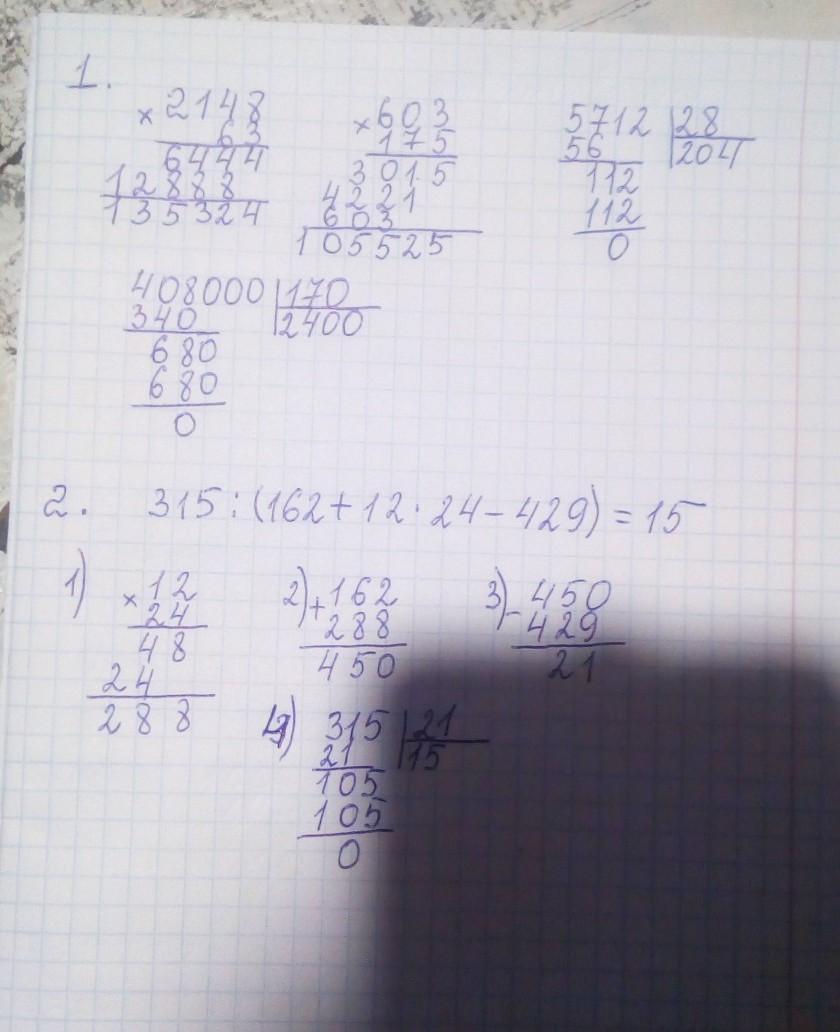 1.
× 2148
63
6444
12888
135324
× 603
175
3015
4221
603
105525
5712 | 28
56 204
112
112
0
408000 | 170
340 2400
680
680
0
2. 315 : (162 + 12 · 24 – 429) = 15
1) × 12
24
48
24
288
2) + 162
288
450
3) – 450
429
21
4) 315 | 21
21 15
105
105
0